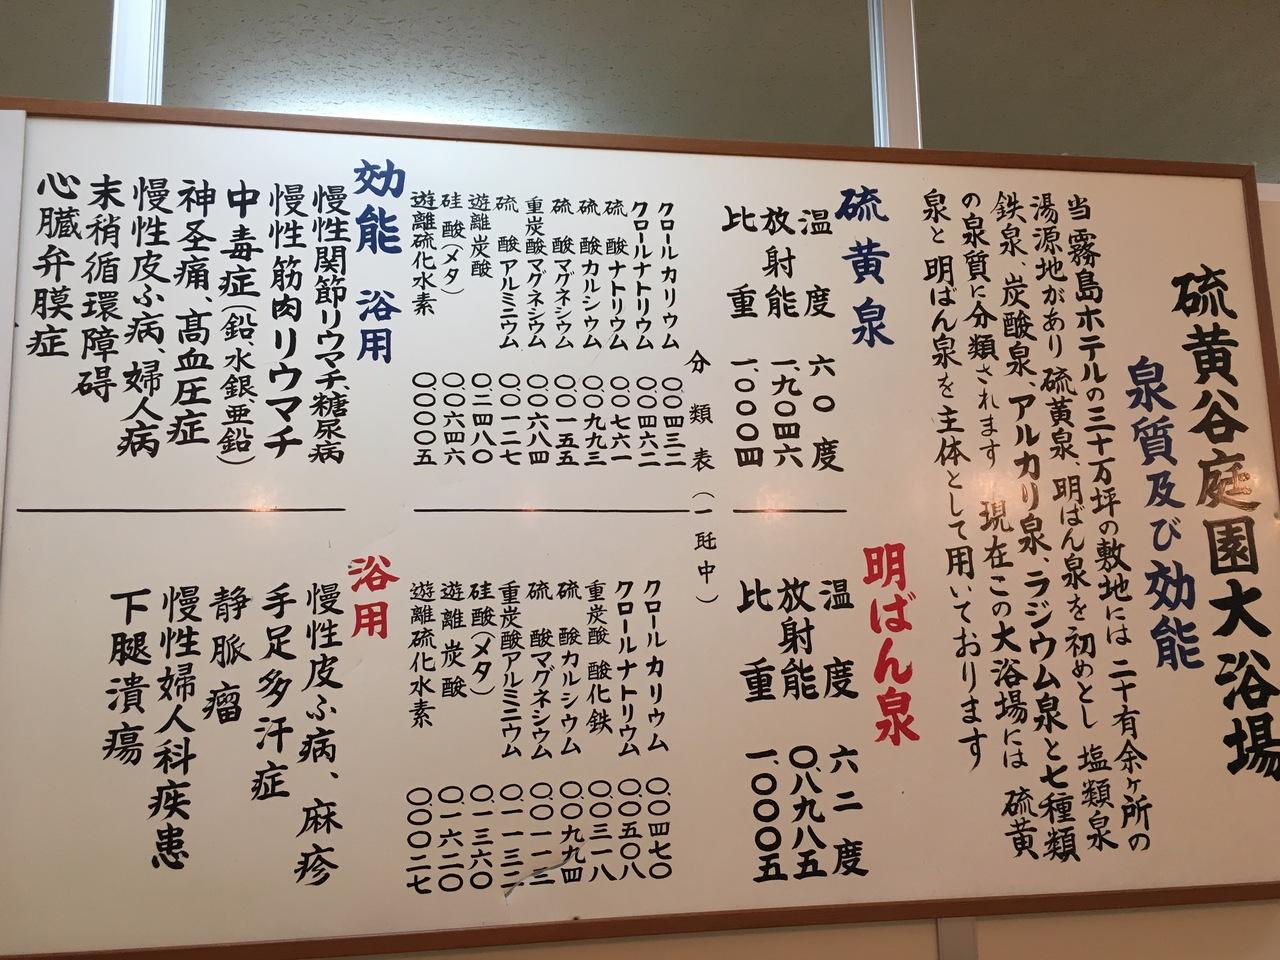 硫黄谷庭園大浴場
泉質及び効能
当霧島ホテルの三十万坪の敷地には二十有余ヶ所の
湯源地があり硫黄泉、明ばん泉を初めとし塩類泉
鉄泉、炭酸泉、アルカリ泉、ラジウム泉と七種類
の泉質に分類されます 現在この大浴場には硫黄
泉と明ばん泉を主体として用いております
硫黄泉
温度 六〇度
放射能 一、九〇四六
比重 一、〇〇〇四
分類表(一瓩中)
クロールカリウム 〇、〇四三二
クロールナトリウム 〇、〇四六二
硫酸ナトリウム 〇、〇七六一
硫酸カルシウム 〇、〇九九三
硫酸マグネシウム 〇、〇一五五
重炭酸マグネシウム 〇、〇六八四
硫酸アルミニウム 〇、〇一二七
遊離炭酸 〇、〇二四八〇
硅酸(メタ) 〇、〇六四六
遊離硫化水素 〇、〇〇〇〇五
効能 浴用
慢性関節リウマチ、糖尿病
慢性筋肉リウマチ
中毒症(鉛水銀、亜鉛)
神圣痛、高血圧症
慢性皮ふ病、婦人病
末稍循環障碍
心臓弁膜症
明ばん泉
温度 六二度
放射能 〇、八九八五
比重 一、〇〇〇五
クロールカリウム 〇、〇四七〇
クロールナトリウム 〇、〇五〇八
重炭酸酸化鉄 〇、〇三一八
硫酸カルシウム 〇、〇九九四
硫酸マグネシウム 〇、〇一一三
重炭酸アルミニウム 〇、一一三二
硅酸(メタ) 〇、一三六〇
遊離炭酸 〇、一六二〇
遊離硫化水素 〇、〇〇二七
浴用
慢性皮ふ病、麻疹
手足多汗症
静脈瘤
慢性婦人科疾患
下腿潰瘍